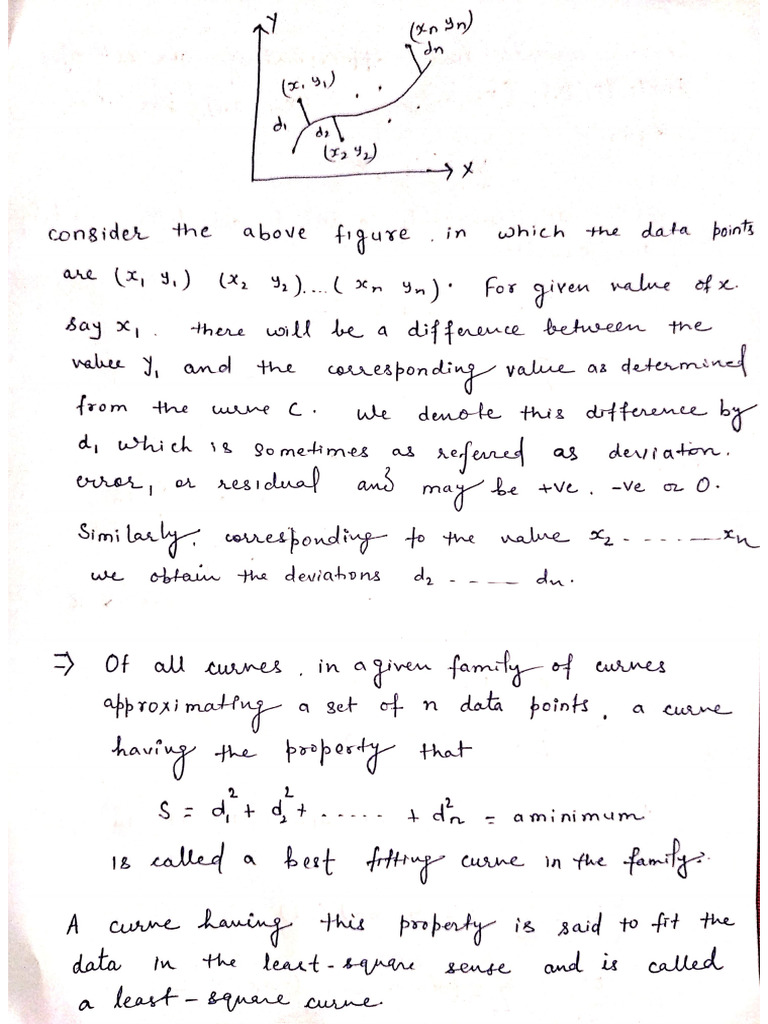 Y
(xn yn)
dn
(x1 y1)
d1
d2
(x2 y2)
X
consider the above figure, in which the data points
are (x1 y1) (x2 y2)....(xn yn). For given value of x.
say x1. there will be a difference between the
value y1 and the corresponding value as determined
from the curve C. We denote this difference by
d1 which is sometimes as referred as deviaton.
error, or residual and may be +ve. -ve or 0.
Similarly, corresponding to the value x2 - - - - - - xn
we obtain the deviations d2 - - - - dn.
⇒ Of all curves, in a given family of curves
approximating a set of n data points, a curve
having the property that
S = d1² + d2² + ..... + dn² = a minimum
is called a best fitting curve in the family.
A curve having this property is said to fit the
data in the least-square sense and is called
a least-square curve.